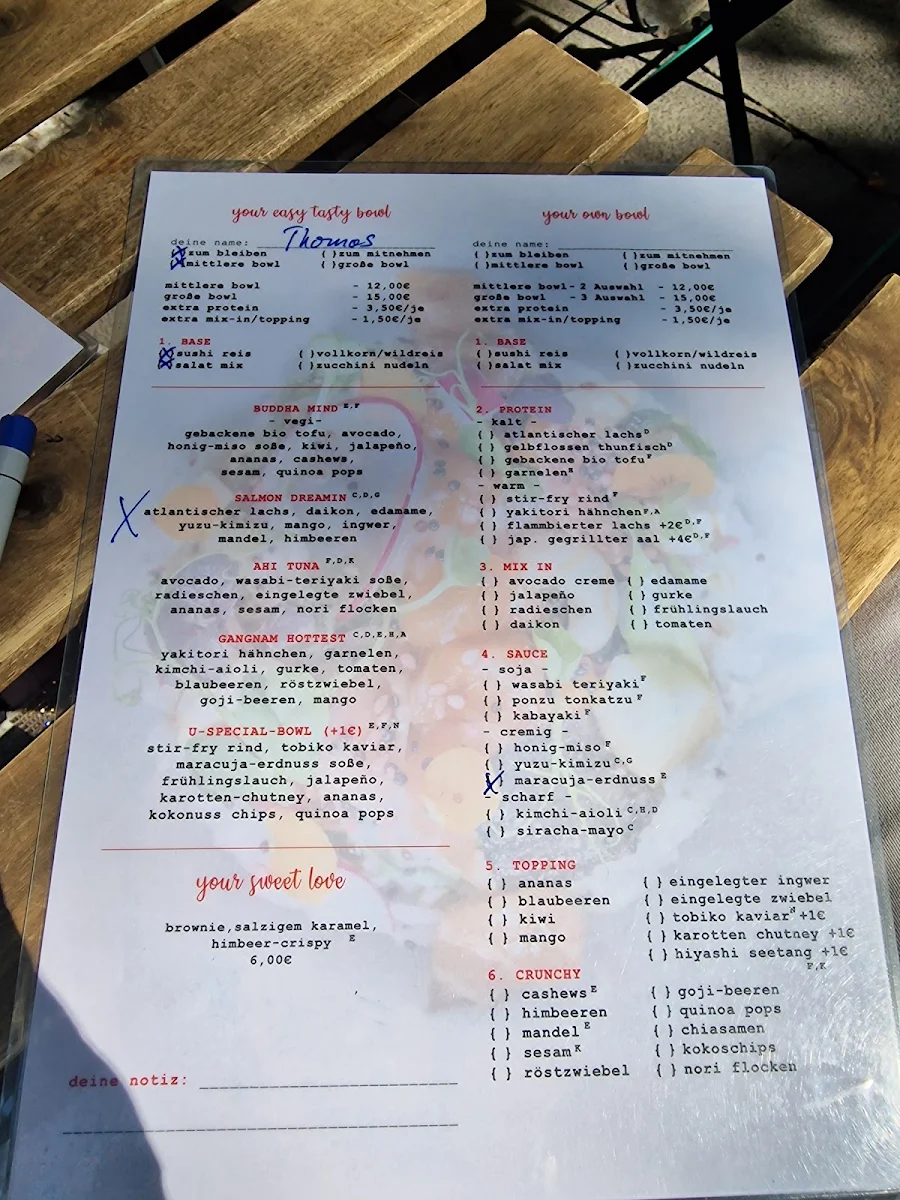 your easy tasty bowl
deine name: Thomas
{X}zum bleiben { }zum mitnehmen
{X}mittlere bowl { }große bowl
mittlere bowl - 12,00€
große bowl - 15,00€
extra protein - 3,50€/je
extra mix-in/topping - 1,50€/je
1. BASE
{X}sushi reis { }vollkorn/wildreis
{X}salat mix { }zucchini nudeln
BUDDHA MIND E,F
- vegi-
gebackene bio tofu, avocado,
honig-miso soße, kiwi, jalapeño,
ananas, cashews,
sesam, quinoa pops
X SALMON DREAMIN C,D,G
atlantischer lachs, daikon, edamame,
yuzu-kimizu, mango, ingwer,
mandel, himbeeren
AHI TUNA F,D,K
avocado, wasabi-teriyaki soße,
radieschen, eingelegte zwiebel,
ananas, sesam, nori flocken
GANGNAM HOTTEST C,D,E,H,A
yakitori hähnchen, garnelen,
kimchi-aioli, gurke, tomaten,
blaubeeren, röstzwiebel,
goji-beeren, mango
U-SPECIAL-BOWL (+1€) E,F,N
stir-fry rind, tobiko kaviar,
maracuja-erdnuss soße,
frühlingslauch, jalapeño,
karotten-chutney, ananas,
kokonuss chips, quinoa pops
your sweet love
brownie,salzigem karamel,
himbeer-crispy E
6,00€
deine notiz:
your own bowl
deine name:
{ }zum bleiben { }zum mitnehmen
{ }mittlere bowl { }große bowl
mittlere bowl- 2 Auswahl - 12,00€
große bowl - 3 Auswahl - 15,00€
extra protein - 3,50€/je
extra mix-in/topping - 1,50€/je
1. BASE
{ }sushi reis { }vollkorn/wildreis
{ }salat mix { }zucchini nudeln
2. PROTEIN
- kalt -
{ } atlantischer lachs D
{ } gelbflossen thunfisch D
{ } gebackene bio tofu F
{ } garnelen H
- warm -
{ } stir-fry rind F
{ } yakitori hähnchen F,A
{ } flammbierter lachs +2€ D,F
{ } jap. gegrillter aal +4€ D,F
3. MIX IN
{ } avocado creme { } edamame
{ } jalapeño { } gurke
{ } radieschen { } frühlingslauch
{ } daikon { } tomaten
4. SAUCE
- soja -
{ } wasabi teriyaki F
{ } ponzu tonkatzu F
{ } kabayaki F
- cremig -
{ } honig-miso F
{ } yuzu-kimizu C,G
{X} maracuja-erdnuss E
- scharf -
{ } kimchi-aioli C,H,D
{ } siracha-mayo C
5. TOPPING
{ } ananas { } eingelegter ingwer
{ } blaubeeren { } eingelegte zwiebel
{ } kiwi { } tobiko kaviar N +1€
{ } mango { } karotten chutney +1€
{ } hiyashi seetang +1€
F,K
6. CRUNCHY
{ } cashews E { } goji-beeren
{ } himbeeren { } quinoa pops
{ } mandel E { } chiasamen
{ } sesam K { } kokoschips
{ } röstzwiebel { } nori flocken